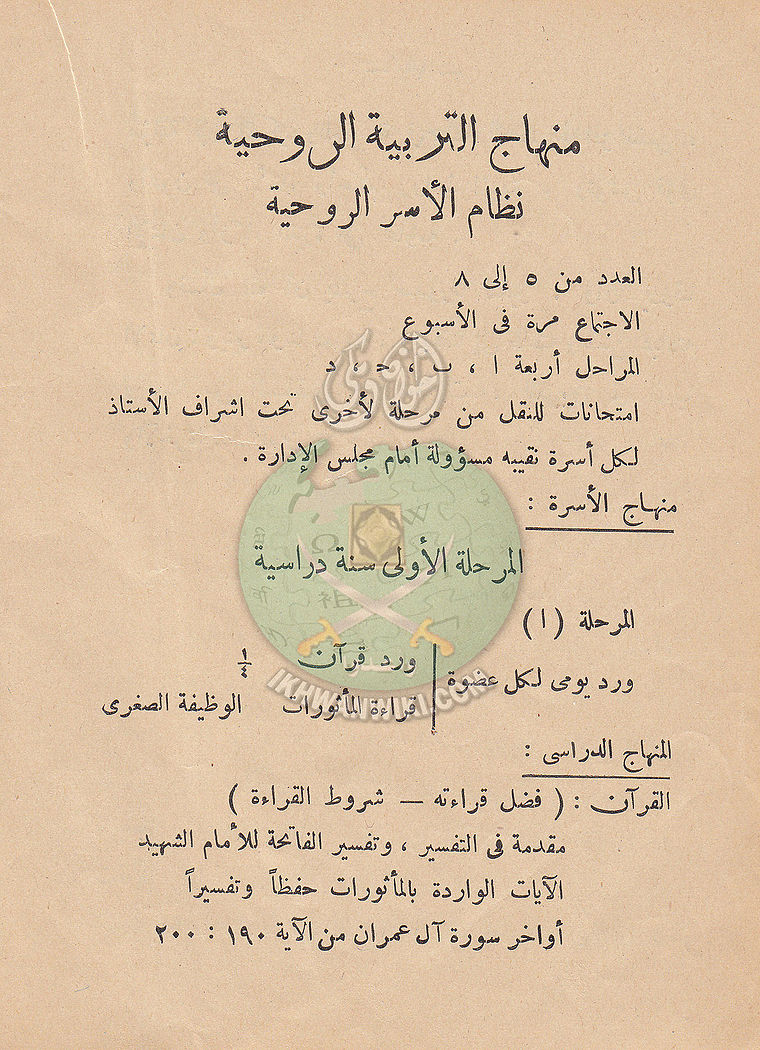 منهاج التربية الروحية
نظام الأسر الروحية
العدد من ٥ إلى ٨
الاجتماع مرة فى الأسبوع
المراحل أربعة ا ، ب ، ح ، د
امتحانات للنقل من مرحلة لأخرى تحت اشراف الأستاذ
لكل أسرة نقيبه مسؤولة أمام مجلس الإدارة .
منهاج الأسرة :
المرحلة الأولى سنة دراسية
المرحلة ( ا )
ورد يومى لكل عضوة
ورد قرآن ١/٤
قراءة المأثورات الوظيفة الصغرى
المنهاج الدراسى :
القرآن : ( فضل قراءته — شروط القراءة )
مقدمة فى التفسير ، وتفسير الفاتحة للأمام الشهيد
الآيات الواردة بالمأثورات حفظاً وتفسيراً
أواخر سورة آل عمران من الآية ١٩٠ : ٢٠٠
إخوان ويكي
IKHWANWIKI.COM